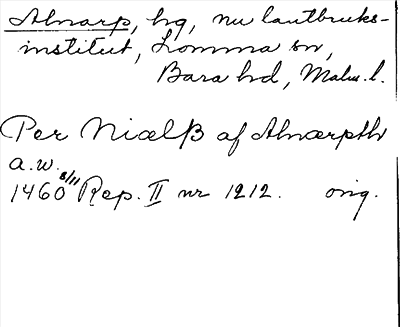 Alnarp, hg, nu lantbruks-
institut, Lomma sn,
Bara hd, Malm. l.
Per Niælß af Alnærpth
a.w.
1460 8/11 Rep. II nr 1212. orig.